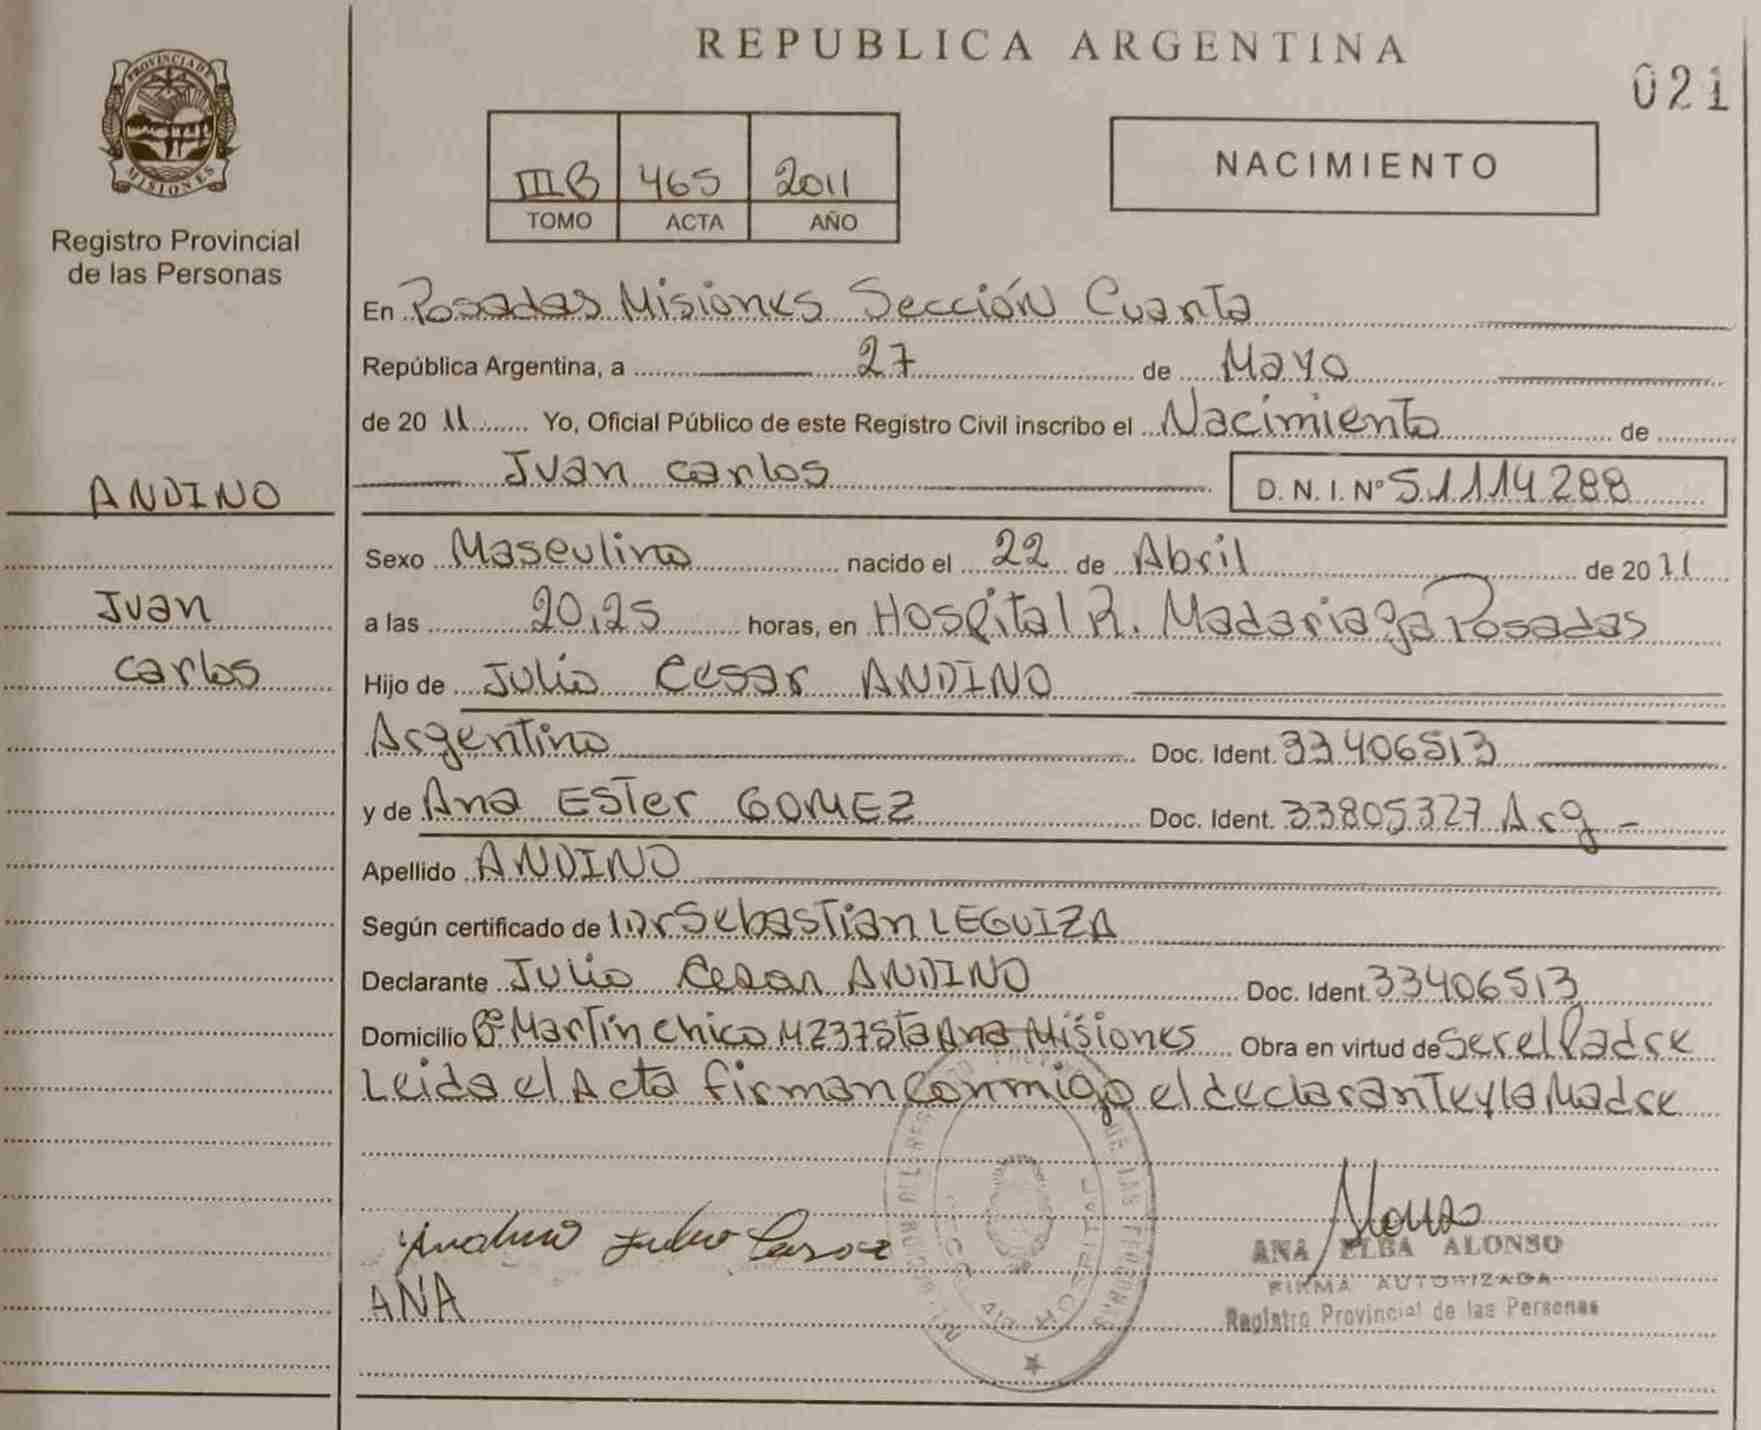 REPUBLICA ARGENTINA
021
PROVINCIA DE
MISIONES
Registro Provincial
de las Personas
III B 465 2011
TOMO ACTA AÑO
NACIMIENTO
En Posadas Misiones Sección Cuarta
República Argentina, a 27 de Mayo
de 2011 Yo, Oficial Público de este Registro Civil inscribo el Nacimiento de
ANDINO
Juan Carlos D. N. I. Nº 51114288
Sexo Masculino nacido el 22 de Abril de 2011
Juan
a las 20,25 horas, en Hospital R. Madariaga Posadas
Carlos
Hijo de Julio Cesar ANDINO
Argentino Doc. Ident. 33406513
y de Ana Ester GOMEZ Doc. Ident. 33805327 Arg -
Apellido ANDINO
Según certificado de Dr Sebastian LEGUIZA
Declarante Julio Cesar ANDINO Doc. Ident. 33406513
Domicilio Bº Martin Chico M237 Sta Ana Misiones Obra en virtud de Ser el Padre
Leida el Acta firman Conmigo el declarante y la Madre
Andino Julio Cesar
Alonso
ANA ELBA ALONSO
FIRMA AUTORIZADA
Registro Provincial de las Personas
ANA